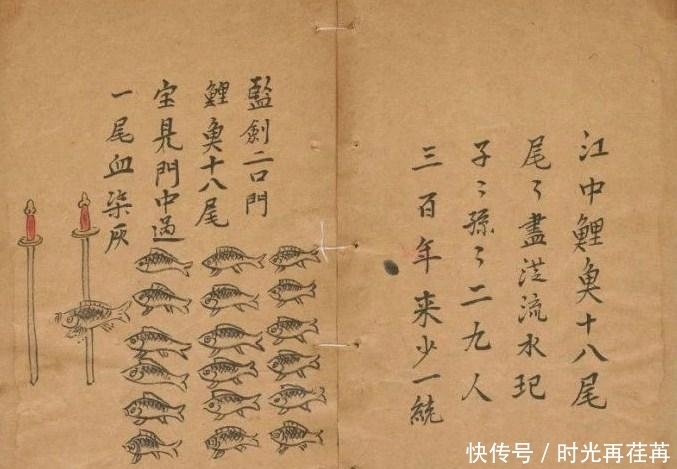 江中鯉魚十八尾
尾々盡流水
子々孫々二九人
三百年来少一統
二口門
鯉魚十八尾
宝見門中過
一尾血染灰
快传号/时光再荏苒